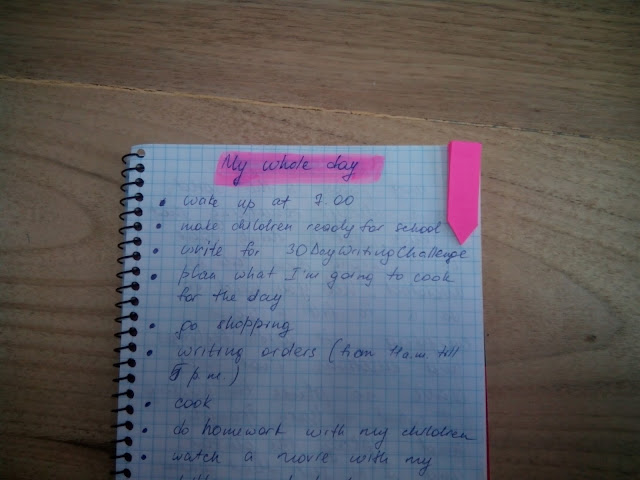 My whole day
• wake up at 7.00
• make children ready for school
• write for 30DayWritingChallenge
• plan what I'm going to cook
for the day
• go shopping
• writing orders (from 11 a.m. till
5 p.m.)
• cook
• do homework with my children
• watch a movie with my